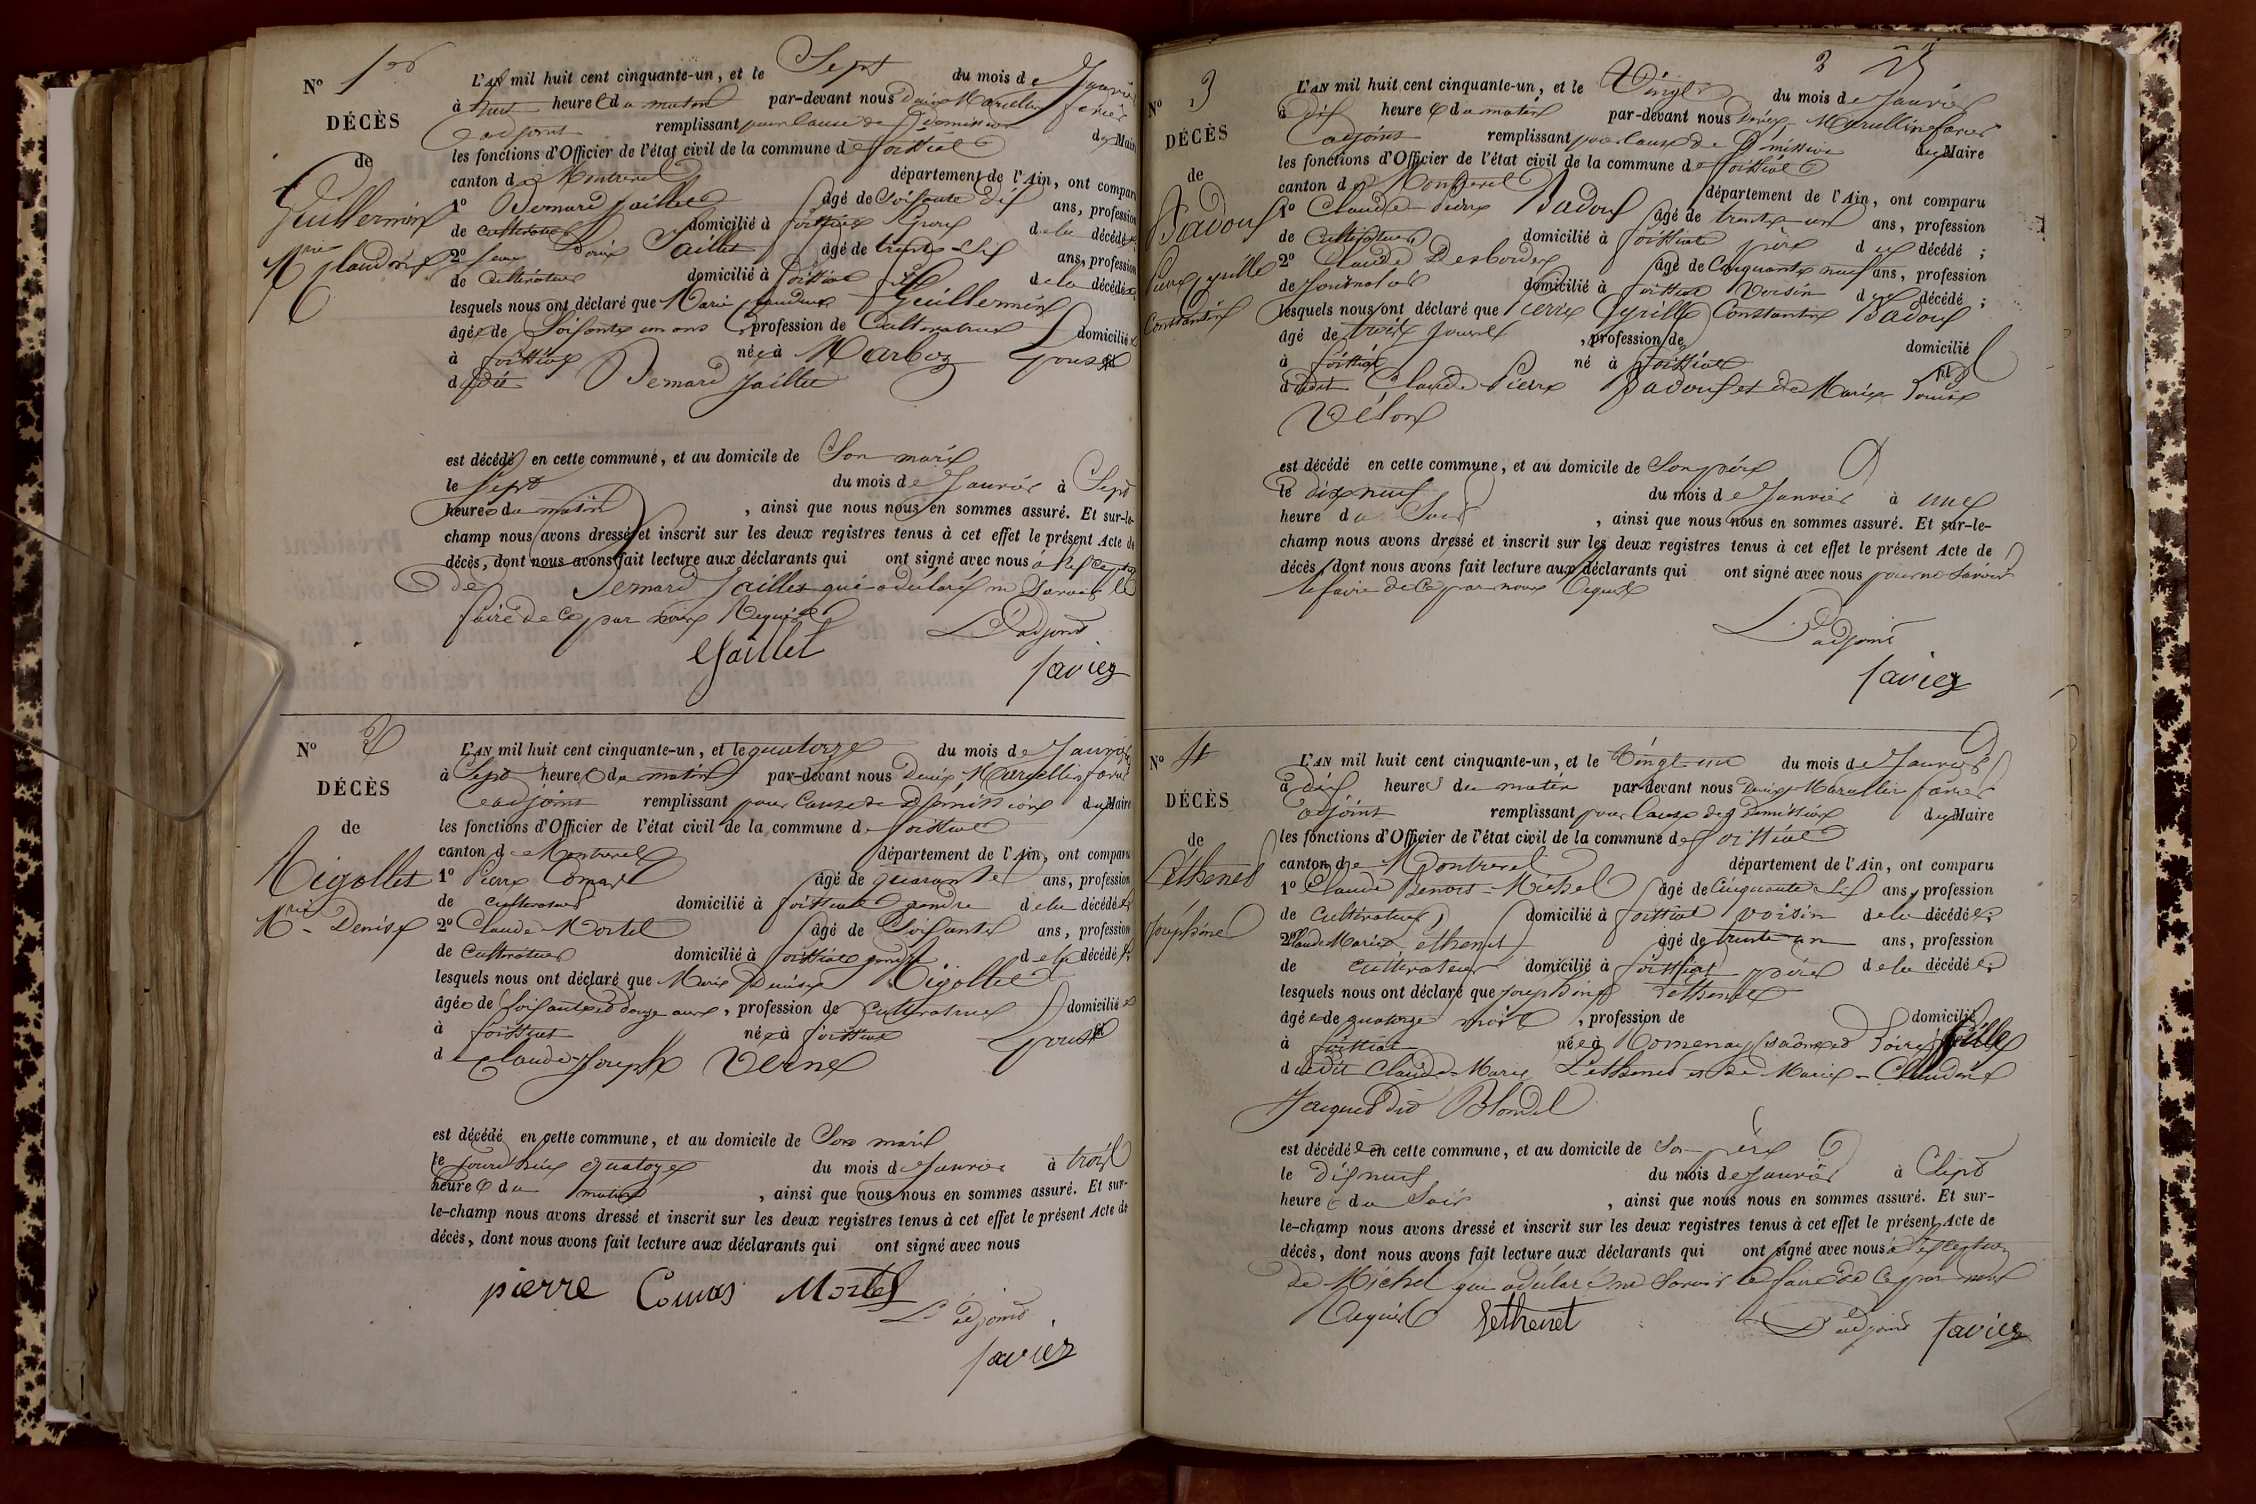 N° 1er
DÉCÈS
de
Guillermin
Mrie Claudine
L'AN mil huit cent cinquante-un, et le Sept du mois de Janvier
à huit heures du matin par-devant nous Denis Marcellin favier
adjoint remplissant pour cause de Démission du Maire
les fonctions d'Officier de l'état civil de la commune de foissiat
canton de Montrevel département de l'Ain, ont comparu
1° Bernard Jaillet âgé de Soisante dix ans, profession
de cultivateur domicilié à foissiat Epoux de la décédée
2° Denis Jaillet âgé de trente-six ans, profession
de Cultivateur domicilié à foissiat fils de la décédée
lesquels nous ont déclaré que Marie Claudine Guillermin
âgée de Soisante un ans, profession de Cultivatrice domiciliée
à foissiat née à Marboz Epouse
dudit Bernard Jaillet
est décédé en cette commune, et au domicile de Son marie
le Sept du mois de Janvier à Sept
heures du matin, ainsi que nous nous en sommes assuré. Et sur-le-
champ nous avons dressé et inscrit sur les deux registres tenus à cet effet le présent Acte de
décès, dont nous avons fait lecture aux déclarants qui ont signé avec nous à l'exception
de Bernard Jaillet qui a déclaré ne Savoir le
faire de ce par nous Requis
Jaillet L'adjoint
favier
N° 2
DÉCÈS
de
Rigollet
Mrie Denise
L'AN mil huit cent cinquante-un, et le quatorze du mois de Janvier
à Sept heures du matin par-devant nous Denis Marcellin favier
adjoint remplissant pour Cause de Démission du Maire
les fonctions d'Officier de l'état civil de la commune de foissiat
canton de Montrevel département de l'Ain, ont comparu
1° Pierre Comas âgé de quarante ans, profession
de cultivateur domicilié à foissiat gendre de la décédée
2° Claude Mortel âgé de Soisante ans, profession
de Cultivateur domicilié à foissiat de la décédée
lesquels nous ont déclaré que Marie Denise Rigollet
âgée de Soisante douze ans, profession de Cultivatrice domiciliée
à foissiat née à foissiat Epouse
de Claude Joseph Verne
est décédé en cette commune, et au domicile de Son marie
le Jourdhui quatorze du mois de Janvier à trois
heures du matin, ainsi que nous nous en sommes assuré. Et sur-
le-champ nous avons dressé et inscrit sur les deux registres tenus à cet effet le présent Acte de
décès, dont nous avons fait lecture aux déclarants qui ont signé avec nous
pierre Comas Mortel
L'adjoint
favier
3
N° 3
DÉCÈS
de
Badoux
Pierre Cyrille
Constantin
L'AN mil huit cent cinquante-un, et le Vingt du mois de Janvier
à dix heures du matin par-devant nous Denis Marcellin favier
adjoint remplissant pour cause de Démission du Maire
les fonctions d'Officier de l'état civil de la commune de foissiat
canton de Montrevel département de l'Ain, ont comparu
1° Claude Pierre Badoux âgé de trente-un ans, profession
de Cultivateur domicilié à foissiat père du décédé ;
2° Claude Desbordes âgé de Cinquante neuf ans, profession
de Journalier domicilié à foissiat Voisin du décédé ;
lesquels nous ont déclaré que Pierre Cyrille Constantin Badoux
âgé de trois Jours, profession de domicilié
à foissiat né à foissiat fils
dudit Claude Pierre Badoux et de Marie Louise
Velon
est décédé en cette commune, et au domicile de Son père
le dix neuf du mois de Janvier à une
heure du Soir, ainsi que nous nous en sommes assuré. Et sur-le-
champ nous avons dressé et inscrit sur les deux registres tenus à cet effet le présent Acte de
décès, dont nous avons fait lecture aux déclarants qui ont signé avec nous pour ne Savoir
le faire de ce par nous Requis
L'adjoint
favier
N° 4
DÉCÈS
de
Lethenet
Joséphine
L'AN mil huit cent cinquante-un, et le Vingt-un du mois de Janvier
à dix heures du matin par-devant nous Denis Marcellin favier
adjoint remplissant pour Cause de Démission du Maire
les fonctions d'Officier de l'état civil de la commune de foissiat
canton de Montrevel département de l'Ain, ont comparu
1° Claude Benoit Michel âgé de Cinquante six ans, profession
de Cultivateur domicilié à foissiat voisin de la décédée ;
2° Claude Marie Lethenet âgé de trente un ans, profession
de Cultivateur domicilié à foissiat père de la décédée
lesquels nous ont déclaré que Joséphine Lethenet
âgée de quatorze mois, profession de domicilié
à foissiat née à Romenay Saône et Loire fille
dudit Claude Marie Lethenet et de Marie Claudine
Jacques dit Blondel
est décédée en cette commune, et au domicile de Son père
le Dix neuf du mois de Janvier à Sept
heures du Soir, ainsi que nous nous en sommes assuré. Et sur-
le-champ nous avons dressé et inscrit sur les deux registres tenus à cet effet le présent Acte de
décès, dont nous avons fait lecture aux déclarants qui ont signé avec nous à l'exception
de Michel qui a déclaré ne Savoir le faire de ce par nous
Requis Lethenet L'adjoint favier